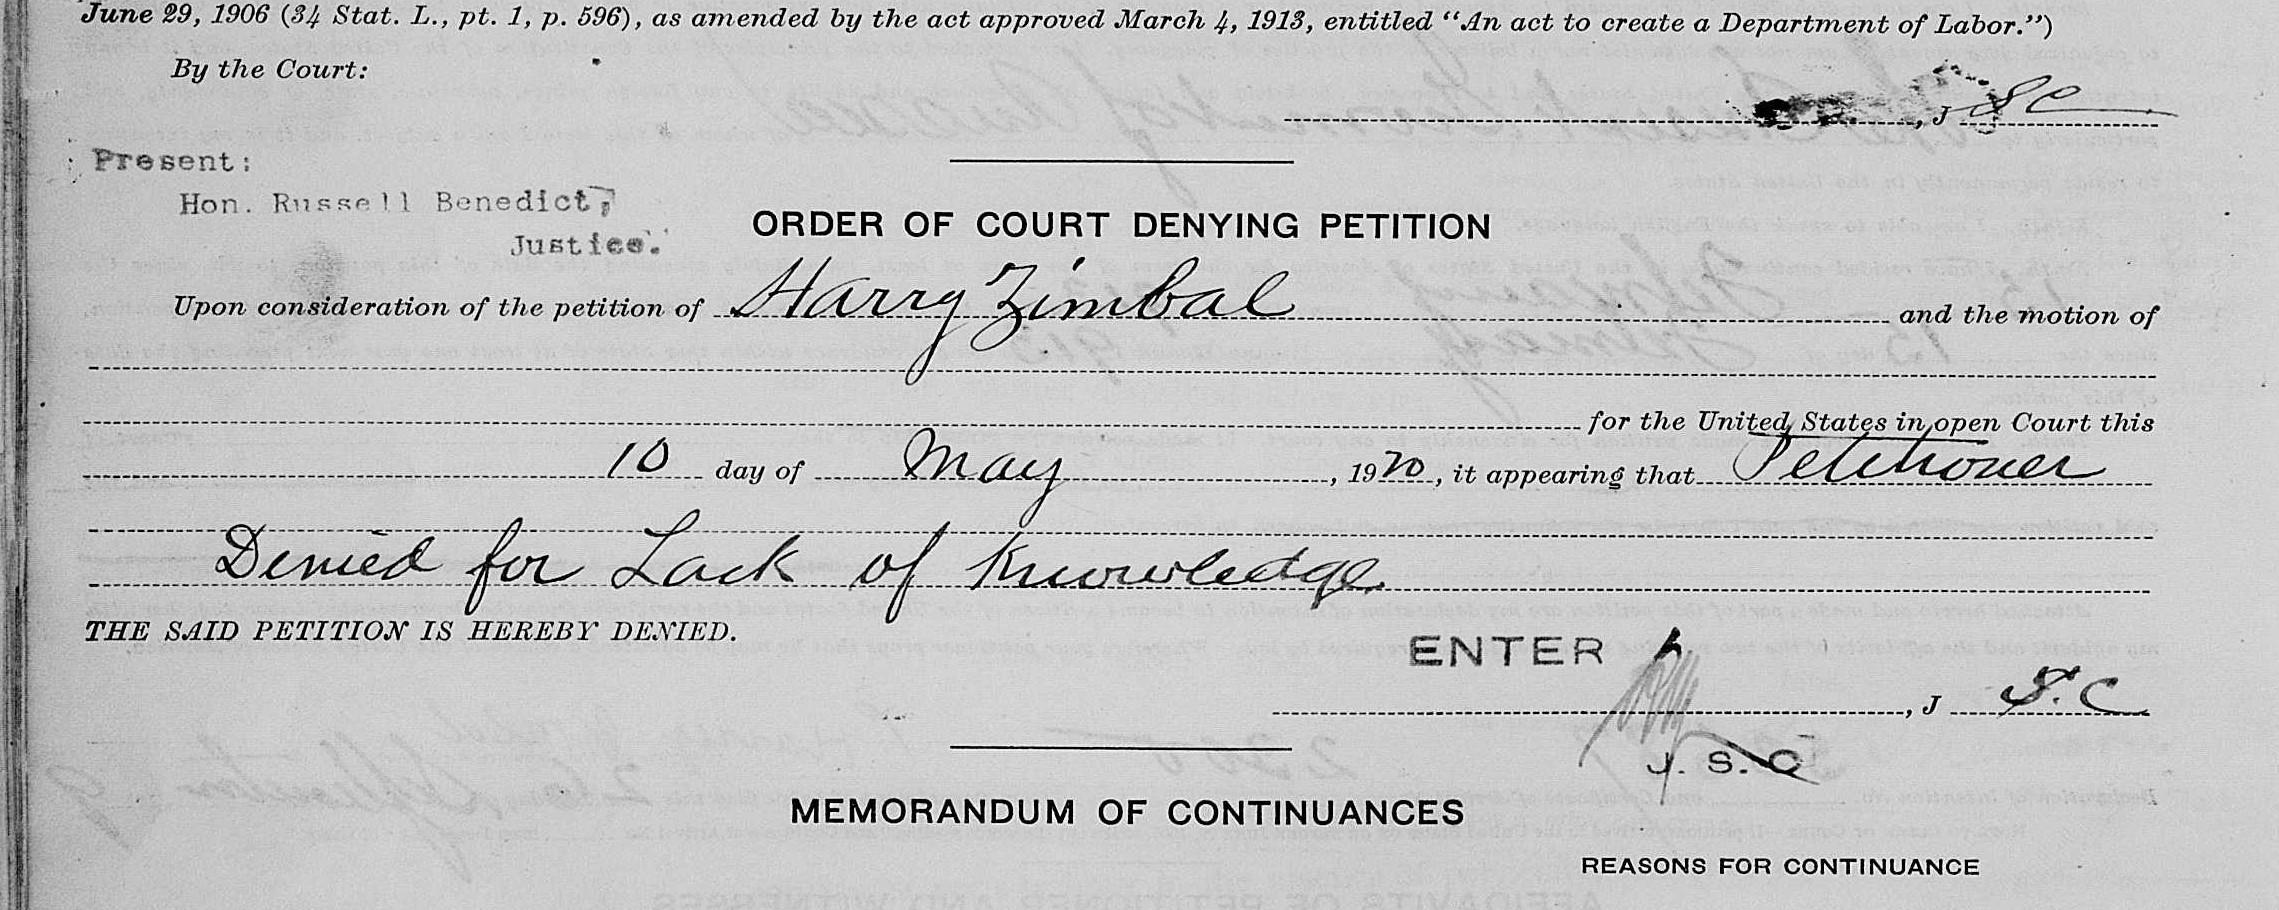 June 29, 1906 (34 Stat. L., pt. 1, p. 596), as amended by the act approved March 4, 1913, entitled "An act to create a Department of Labor.")
By the Court:
, J S C
Present:
Hon. Russell Benedict,
Justice.
ORDER OF COURT DENYING PETITION
Upon consideration of the petition of Harry Zimbal and the motion of
for the United States in open Court this
10 day of May, 1920, it appearing that Petitioner
Denied for Lack of Knowledge
THE SAID PETITION IS HEREBY DENIED.
ENTER
, J S. C
J. S. C
MEMORANDUM OF CONTINUANCES
REASONS FOR CONTINUANCE